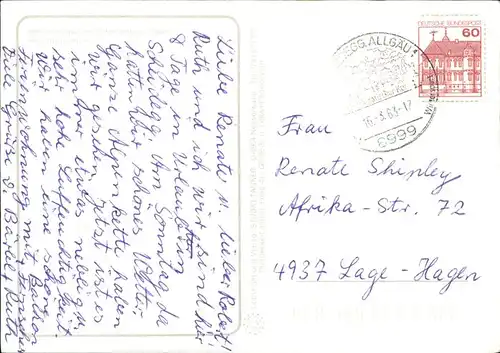 Liebe Renate u. lieber Robert!
Ruth und ich wir sind hier
8 Tage in Urlaub in
Scheidegg. Am Sonntag da
hatten wir schönes Wetter.
Ganze Alpenkette haben
wir gesehen. Jetzt ist es
immer etwas neblig u.
sehr hohe Luftfeuchtigkeit.
Wir haben eine schöne
Ferienwohnung mit Balkon
Viele Grüße v. Bärbel, Ruth
DEUTSCHE BUNDESPOST
60
EGG, ALLGÄU
-3.83-17
8999
Frau
Renate Shipley
Afrika-Str. 72
4937 Lage-Hagen